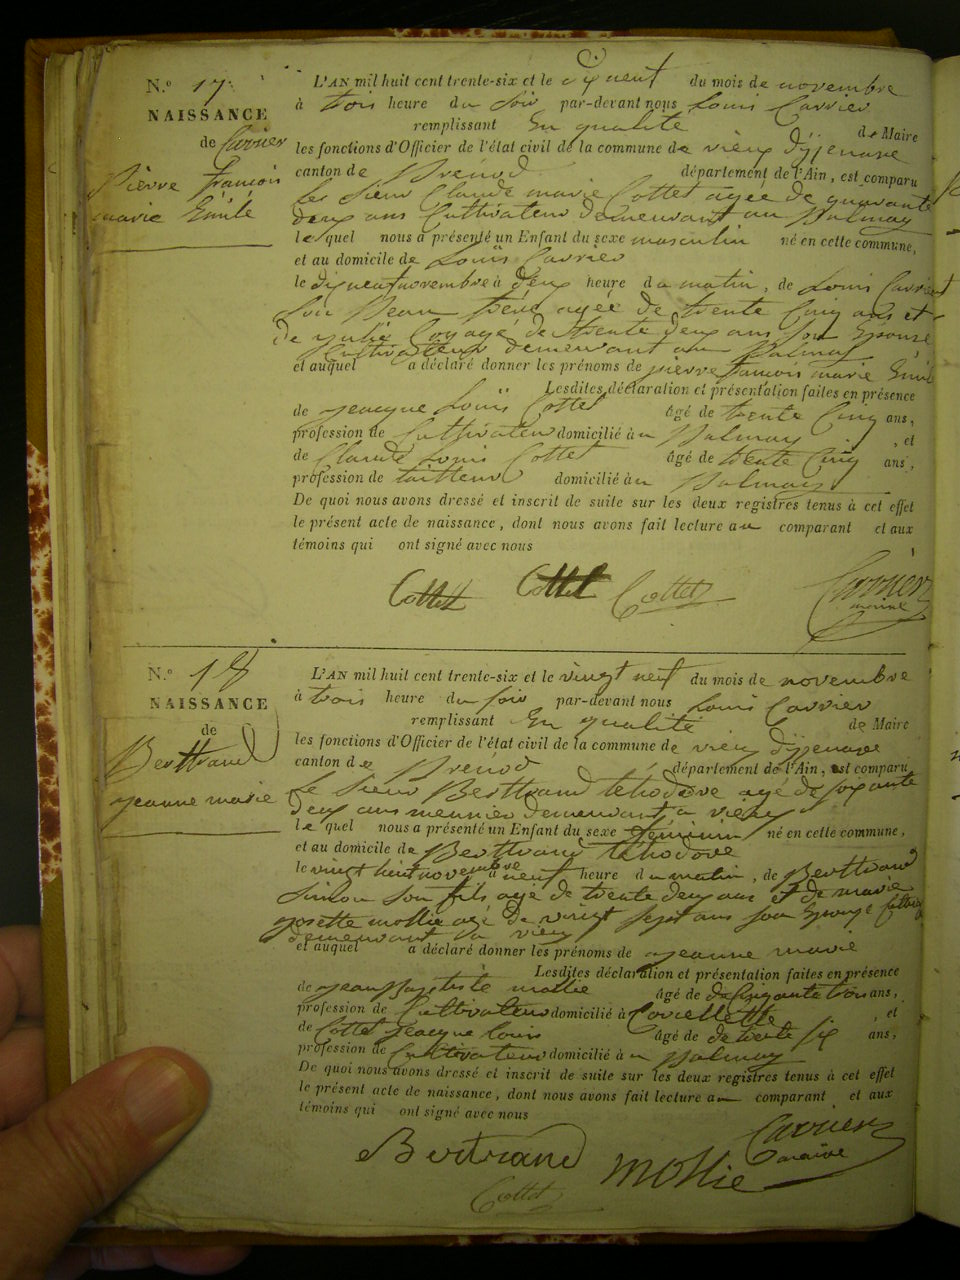 N.° 17
NAISSANCE
de Carrier
Pierre françois
marie Émile
L'AN mil huit cent trente-six et le dixneuf du mois de novembre
à trois heure du soir par-devant nous Louis Carrier
remplissant En qualité de Maire
les fonctions d'Officier de l'état civil de la commune de vieux d'yzenave
canton de Brénod département de l'Ain, est comparu
Le sieur Claude marie Cottet agée de quarante
deux ans Cultivateur demeurant au Balmay
lequel nous a présenté un Enfant du sexe masculin né en cette commune,
et au domicile de Louis Carrier
le dixneuf novembre à deux heure du matin, de Louis Carrier
son Beau frère agée de trente Cinq ans et
De julie agé de trente deux ans son Epouse
Cultivateur demeurant au Balmay
et auquel a déclaré donner les prénoms de pierre françois marie Emile
Lesdites déclaration et présentation faites en présence
de jeacque Louis Cottet âgé de trente Cinq ans,
profession de Cultivateur domicilié au Balmay , et
de Claude Louis Cottet âgé de trente Cinq ans,
profession de tailleur domicilié au Balmay
De quoi nous avons dressé et inscrit de suite sur les deux registres tenus à cet effet
le présent acte de naissance, dont nous avons fait lecture au comparant et aux
témoins qui ont signé avec nous
Cottet Cottet Cottet Carrier
maire
N.° 18
NAISSANCE
de
Berttrand
jeanne marie
L'AN mil huit cent trente-six et le vingt neuf du mois de novembre
à trois heure du soir par-devant nous Louis Carrier
remplissant En qualité de Maire
les fonctions d'Officier de l'état civil de la commune de vieux d'yzenave
canton de Brénod département de l'Ain, est comparu
Le sieur Berttrand téhodore agé de soixante
deux ans meunier demeurant à vieux
lequel nous a présenté un Enfant du sexe féminin né en cette commune,
et au domicile de Berttrand téhodore
le vingt huit novembre à neuf heure du matin, de Berttrand
simon son fils agé de trente deux ans et de marie
josette mollie agé de vingt sept ans son Epouse
demeurant à vieux
et auquel a déclaré donner les prénoms de jeanne marie
Lesdites déclaration et présentation faites en présence
de jean Baptiste mollie âgé de Cinquante trois ans,
profession de Cultivateur domicilié à Corcellette , et
de Cottet jeacque louis âgé de trente six ans,
profession de Cultivateur domicilié au Balmay
De quoi nous avons dressé et inscrit de suite sur les deux registres tenus à cet effet
le présent acte de naissance, dont nous avons fait lecture au comparant et aux
témoins qui ont signé avec nous
Bertrand mollie Carrier
maire
Cottet